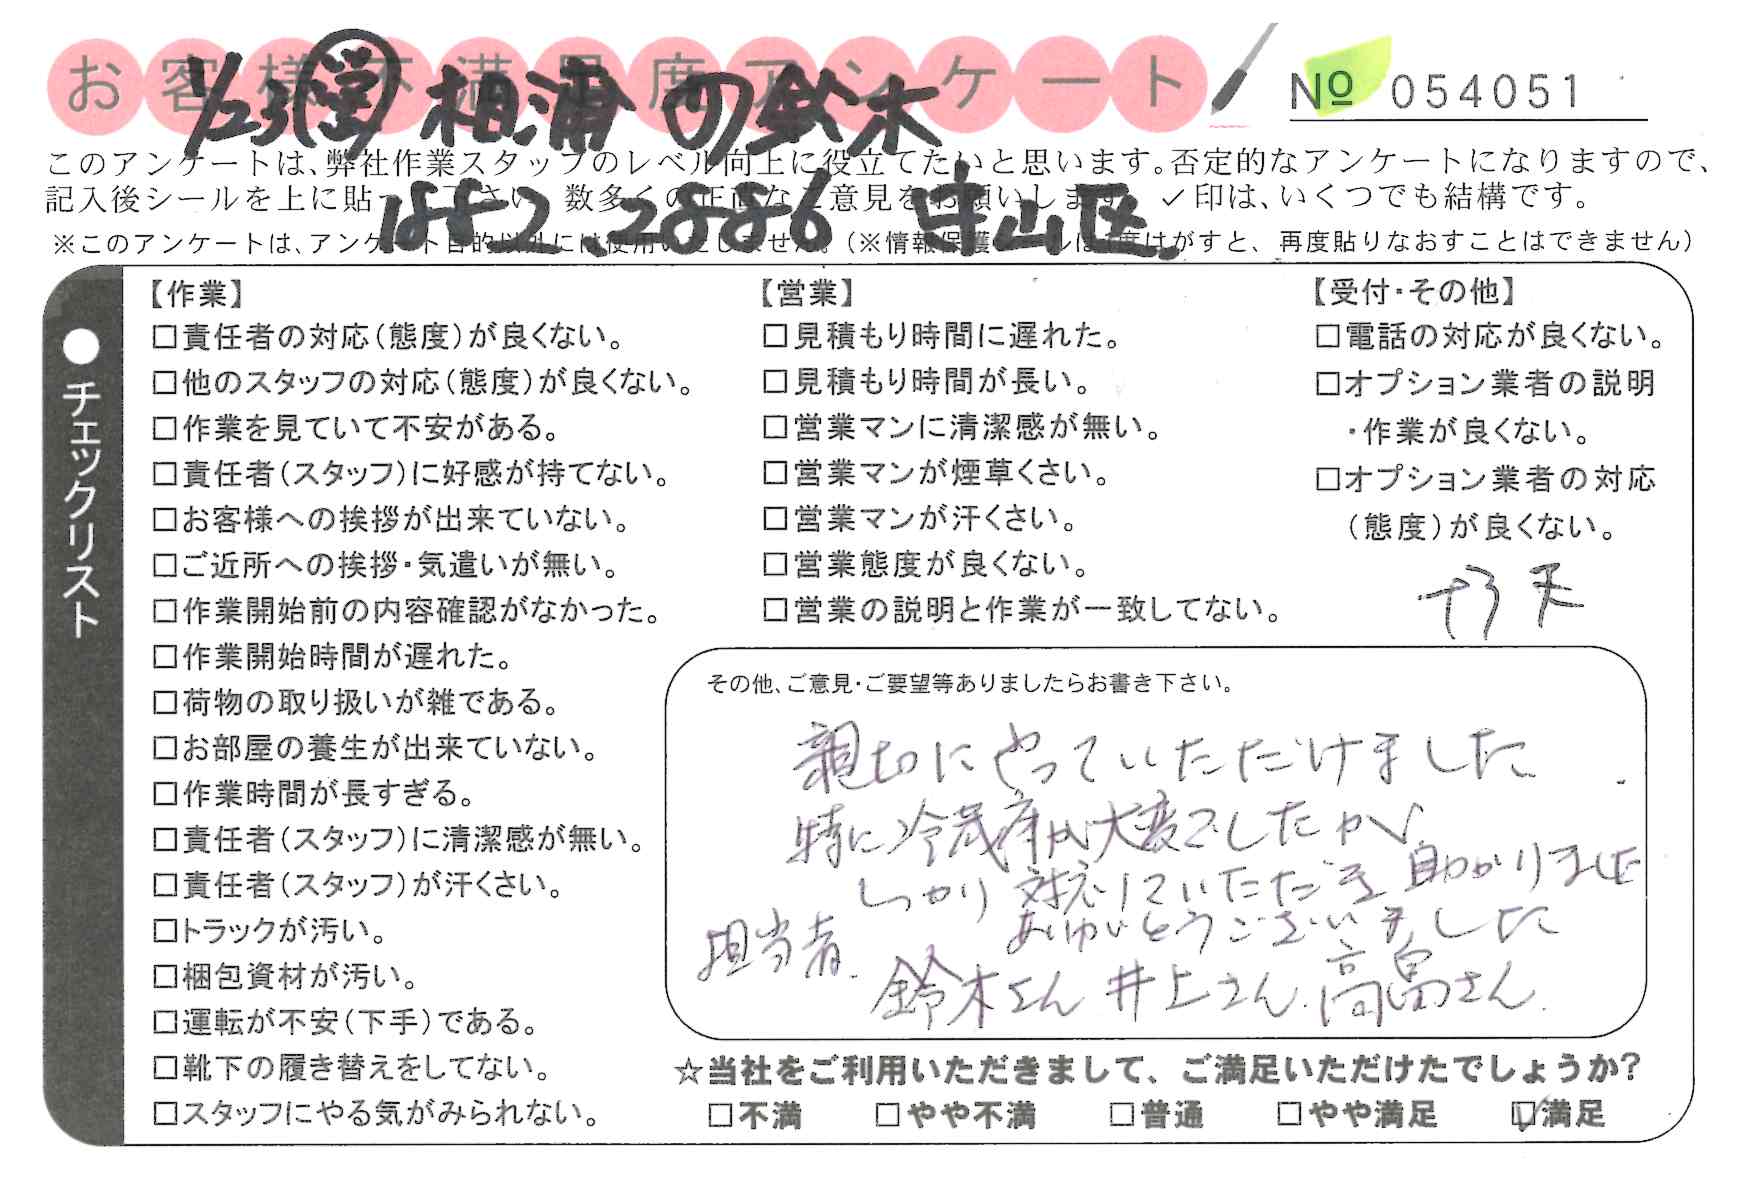 お客様不満足度アンケート
№ 054051
1/23 営 相浦 の鈴木
このアンケートは、弊社作業スタッフのレベル向上に役立てたいと思います。否定的なアンケートになりますので、
記入後シールを上に貼って下さい。数多くの正直なご意見をお願いします。✓印は、いくつでも結構です。
1882、2886
※このアンケートは、アンケート目的以外には使用いたしません。(※情報保護シールは1度はがすと、再度貼りなおすことはできません)
●チェックリスト
【作業】
□責任者の対応(態度)が良くない。
□他のスタッフの対応(態度)が良くない。
□作業を見ていて不安がある。
□責任者(スタッフ)に好感が持てない。
□お客様への挨拶が出来ていない。
□ご近所への挨拶・気遣いが無い。
□作業開始前の内容確認がなかった。
□作業開始時間が遅れた。
□荷物の取り扱いが雑である。
□お部屋の養生が出来ていない。
□作業時間が長すぎる。
□責任者(スタッフ)に清潔感が無い。
□責任者(スタッフ)が汗くさい。
□トラックが汚い。
□梱包資材が汚い。
□運転が不安(下手)である。
□靴下の履き替えをしてない。
□スタッフにやる気がみられない。
【営業】
□見積もり時間に遅れた。
□見積もり時間が長い。
□営業マンに清潔感が無い。
□営業マンが煙草くさい。
□営業マンが汗くさい。
□営業態度が良くない。
□営業の説明と作業が一致してない。
【受付・その他】
□電話の対応が良くない。
□オプション業者の説明
・作業が良くない。
□オプション業者の対応
(態度)が良くない。
その他、ご意見・ご要望等ありましたらお書き下さい。
親切にやっていただけました
特に冷蔵庫が大変でしたが
しっかり対応していただき助かりました
ありがとうございました
担当者
鈴木さん 井上さん 高畠さん
☆当社をご利用いただきまして、ご満足いただけたでしょうか?
□不満 □やや不満 □普通 □やや満足 ☑満足